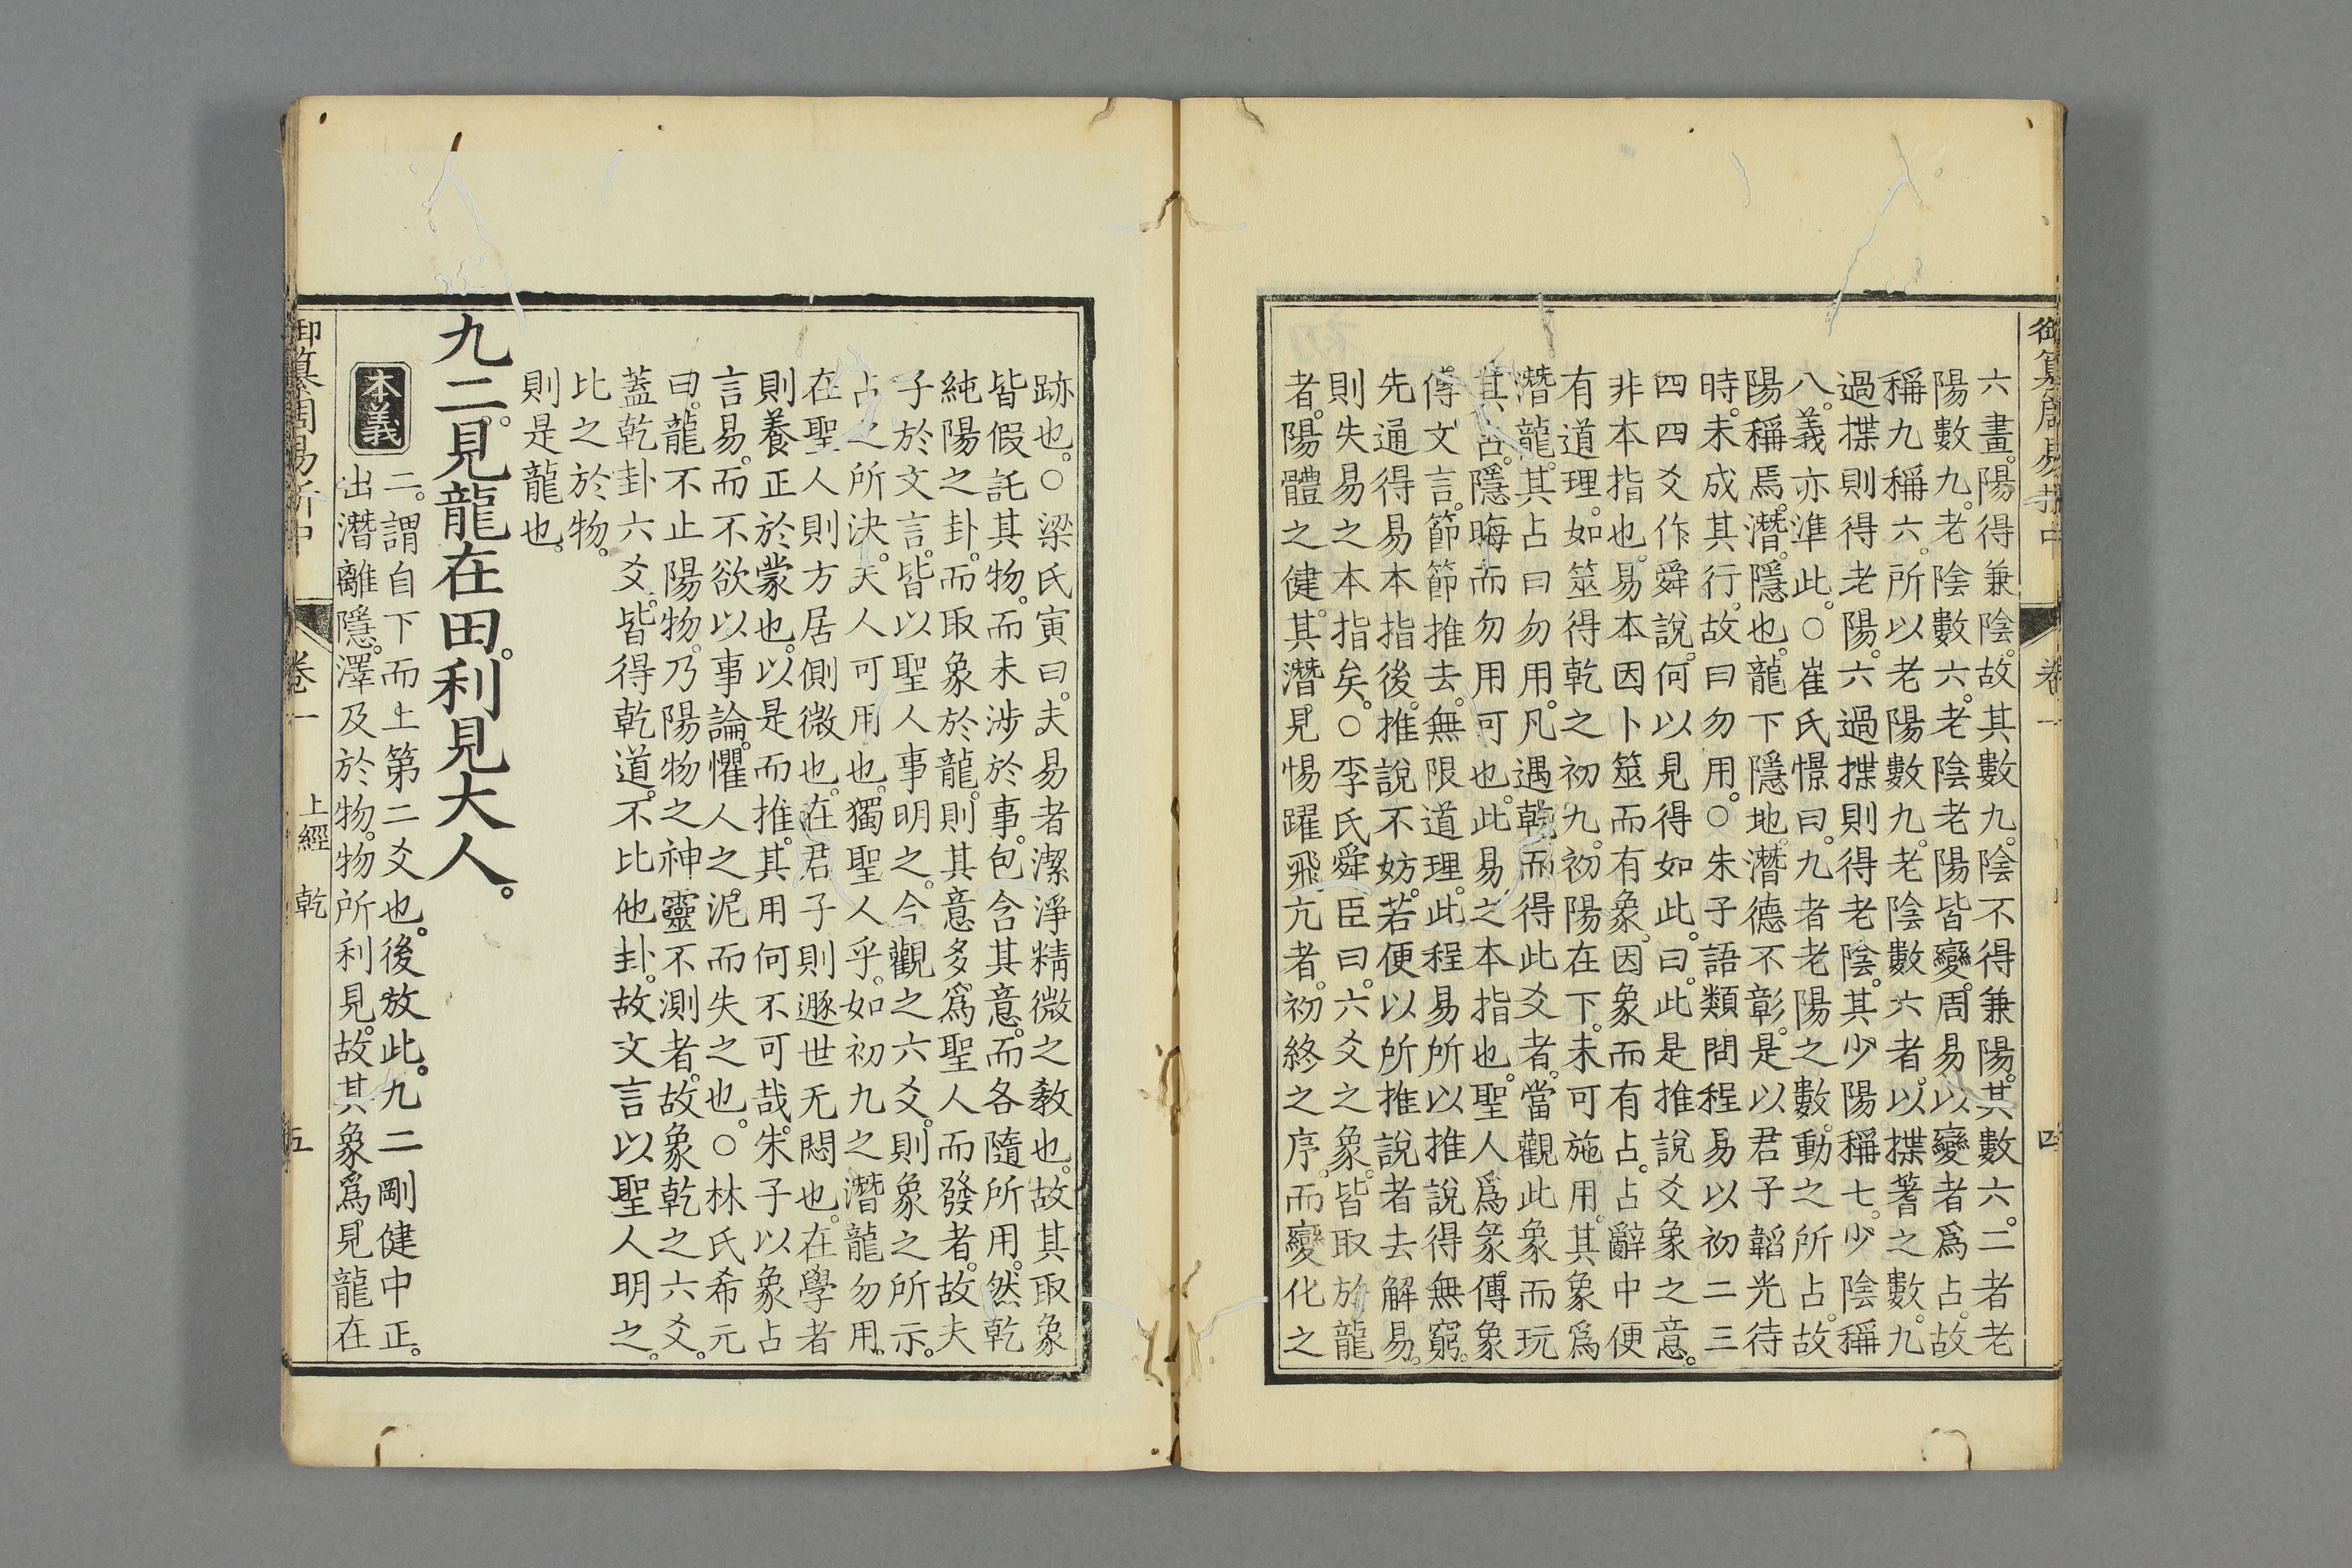 御纂周易折中 卷一 四
六畫。陽得兼陰。故其數九。陰不得兼陽。其數六。二者老
陽數九。老陰數六。老陰老陽皆變。周易以變者爲占。故
稱九稱六。所以老陽數九。老陰數六者。以揲蓍之數。九
過揲則得老陽。六過揲則得老陰。其少陽稱七。少陰稱
八。義亦準此。○崔氏憬曰。九者老陽之數。動之所占。故
陽稱焉。潛。隱也。龍下隱地。潛德不彰。是以君子韜光待
時。未成其行。故曰勿用。○朱子語類問程易以初二三
四四爻作舜說。何以見得如此。曰。此是推說爻象之意。
非本指也。易本因卜筮而有象。因象而有占。占辭中便
有道理。如筮得乾之初九。初陽在下。未可施用。其象爲
潛龍。其占曰勿用。凡遇乾而得此爻者。當觀此象而玩
其占。隱晦而勿用可也。此易之本指也。聖人爲彖傳象
傳文言。節節推去。無限道理。此程易所以推說得無窮。
先通得易本指後。推說不妨。若便以所推說者去解易。
則失易之本指矣。○李氏舜臣曰。六爻之象。皆取於龍
者。陽體之健。其潛見惕躍飛亢者。初終之序。而變化之
跡也。○梁氏寅曰。夫易者潔淨精微之教也。故其取象
皆假託其物。而未涉於事。包含其意。而各隨所用。然乾
純陽之卦。而取象於龍。則其意多爲聖人而發者。故夫
子於文言。皆以聖人事明之。今觀之六爻。則象之所示。
占之所決。夫人可用也。獨聖人乎。如初九之潛龍勿用。
在聖人則方居側微也。在君子則遯世无悶也。在學者
則養正於蒙也。以是而推。其用何不可哉。朱子以象占
言易。而不欲以事論。懼人之泥而失之也。○林氏希元
曰。龍不止陽物。乃陽物之神靈不測者。故象乾之六爻。
蓋乾卦六爻。皆得乾道。不比他卦。故文言以聖人明之。
比之於物。
則是龍也。
九二。見龍在田。利見大人。
本義 二。謂自下而上第二爻也。後放此。九二剛健中正。
出潛離隱。澤及於物。物所利見。故其象爲見龍在
御纂周易折中 卷一 上經 乾 五